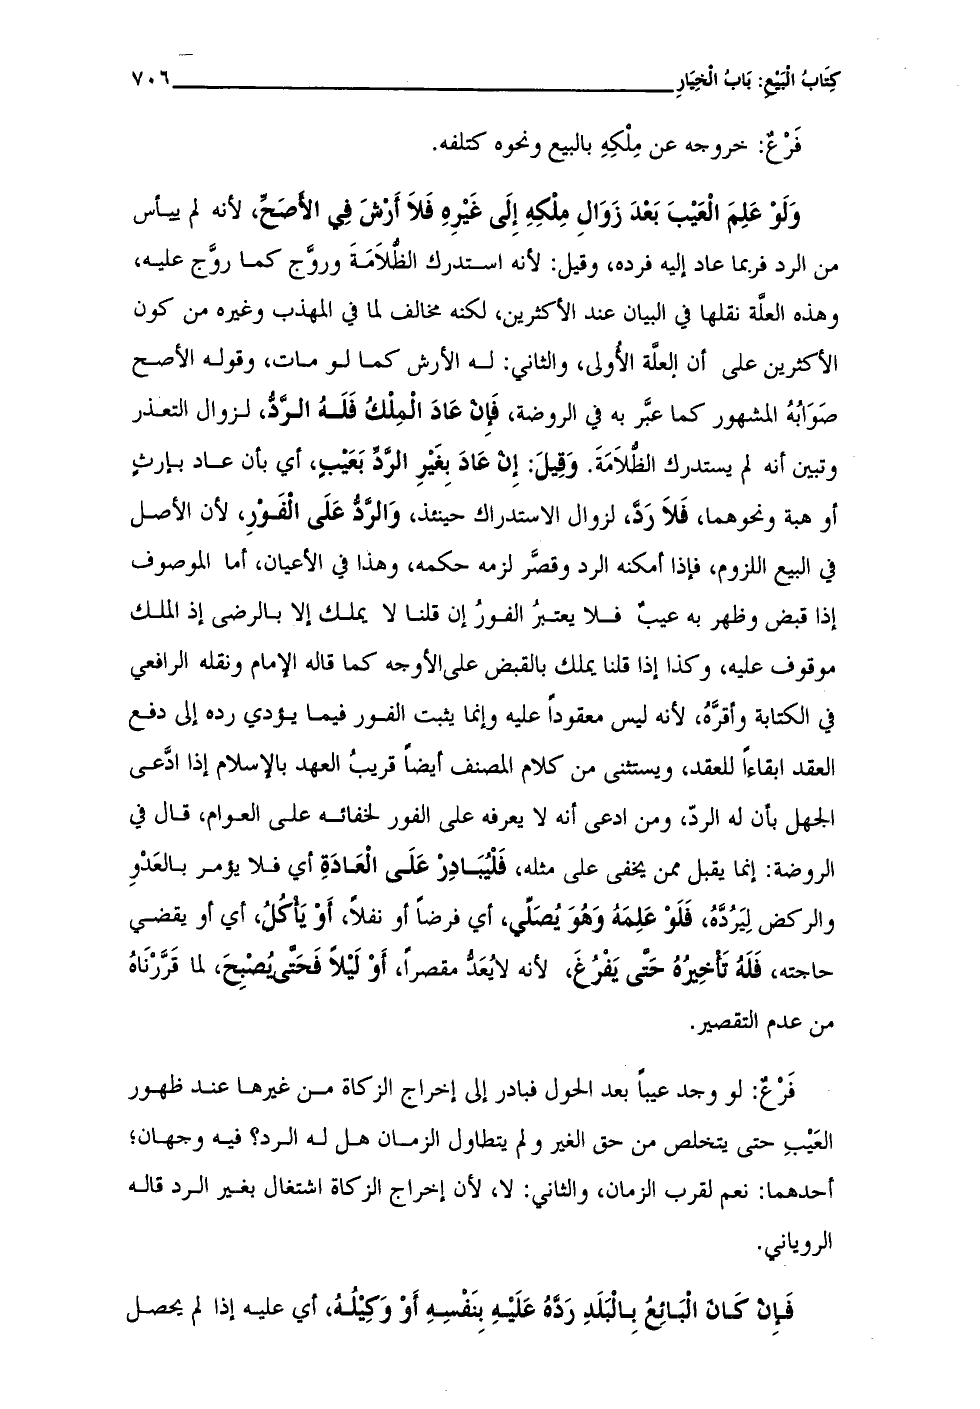 كِتَابُ الْبَيْعِ: بَابُ الْخِيَارِ ٧٠٦
فَرْعٌ: خروجه عن مِلْكِهِ بالبيع ونحوه كتلفه.
وَلَوْ عَلِمَ الْعَيْبَ بَعْدَ زَوَالِ مِلْكِهِ إِلَى غَيْرِهِ فَلاَ أَرْشَ فِي الأَصَحِّ، لأنه لم ييأس
من الرد فربما عاد إليه فرده، وقيل: لأنه استدرك الظُّلاَمَةَ وروَّج كما روَّج عليه،
وهذه العلَّة نقلها في البيان عند الأكثرين، لكنه مخالف لما في المهذب وغيره من كون
الأكثرين على أن العلَّة الأُولى، والثاني: له الأرش كما لو مات، وقوله الأصح
صَوَابُهُ المشهور كما عبَّر به في الروضة، فَإِنْ عَادَ الْمِلْكُ فَلَهُ الرَّدُّ، لزوال التعذر
وتبين أنه لم يستدرك الظُّلاَمَةَ. وَقِيلَ: إِنْ عَادَ بِغَيْرِ الرَّدِّ بَعَيْبٍ، أي بأن عاد بإرثٍ
أو هبة ونحوهما، فَلاَ رَدَّ، لزوال الاستدراك حينئذ، وَالرَّدُّ عَلَى الْفَوْرِ، لأن الأصل
في البيع اللزوم، فإذا أمكنه الرد وقصَّر لزمه حكمه، وهذا في الأعيان، أما الموصوف
إذا قبض وظهر به عيبٌ فلا يعتبرُ الفورُ إن قلنا لا يملك إلا بالرضى إذ الملك
موقوف عليه، وكذا إذا قلنا يملك بالقبض على الأوجه كما قاله الإمام ونقله الرافعي
في الكتابة وأقرَّهُ، لأنه ليس معقوداً عليه وإنما يثبت الفور فيما يؤدي رده إلى دفع
العقد ابقاءاً للعقد، ويستثنى من كلام المصنف أيضاً قريبُ العهد بالإسلام إذا ادَّعى
الجهل بأن له الردّ، ومن ادعى أنه لا يعرفه على الفور لخفائه على العوام، قال في
الروضة: إنما يقبل ممن يخفى على مثله، فَلْيُبَادِرْ عَلَى الْعَادَةِ أي فلا يؤمر بالعَدْوِ
والركض لِيَرُدَّهُ، فَلَوْ عَلِمَهُ وَهُوَ يُصَلِّي، أي فرضاً أو نفلاً، أَوْ يَأْكُلُ، أي أو يقضي
حاجته، فَلَهُ تَأْخِيرُهُ حَتَّى يَفْرُغَ، لأنه لا يُعَدُّ مقصراً، أَوْ لَيْلاً فَحَتَّى يُصْبِحَ، لما قَرَّرْنَاهُ
من عدم التقصير.
فَرْعٌ: لو وجد عيباً بعد الحول فبادر إلى إخراج الزكاة من غيرها عند ظهور
العَيْبِ حتى يتخلص من حق الغير ولم يتطاول الزمان هل له الرد؟ فيه وجهان؛
أحدهما: نعم لقرب الزمان، والثاني: لا، لأن إخراج الزكاة اشتغال بغير الرد قاله
الروياني.
فَإِنْ كَانَ الْبَائِعُ بِالْبَلَدِ رَدَّهُ عَلَيْهِ بِنَفْسِهِ أَوْ وَكِيْلُهُ، أي عليه إذا لم يحصل